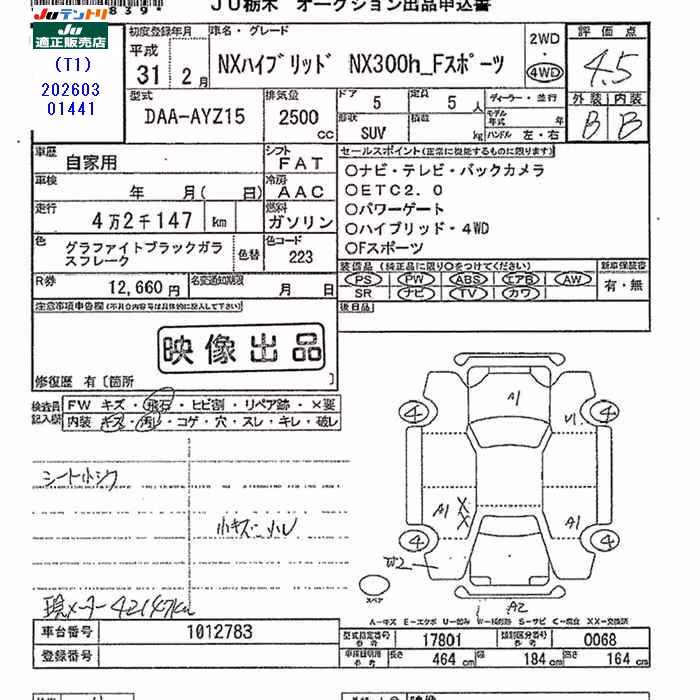 JU栃木 オークション出品申込書
Juテントリ
JU適正販売店
(T1)
202603
01441
初度登録年月
平成
31 2月
車名・グレード
NXハイブリッド NX300h_Fスポーツ
2WD
・
4WD
評価点
4.5
外装 内装
B B
型式
DAA-AYZ15
排気量
2500 cc
ドア 5
定員 5 人
形状 SUV
積載 kg
ディーラー・並行
モデル年式 年
ハンドル 左・右
車歴 自家用
シフト FAT
車検 年 月( 日)
冷房 AAC
走行 4万2千147 km
燃料 ガソリン
色 グラファイトブラックガラスフレーク
色替
色コード 223
R券 12,660円
名変通知期限 月 日
セールスポイント(正常に機能するものに限ります)
○ナビ・テレビ・バックカメラ
○ETC2.0
○パワーゲート
○ハイブリッド・4WD
○Fスポーツ
装備品(純正品に限り○をつけてください)
PS PW ABS エアB AW
SR ナビ TV カワ
新車保証書
有・無
後日品
注意事項申告欄(不具合内容等は具体的に記入して下さい)
映像出品
修復歴 有〔箇所 〕
検査員記入欄
FW キズ・飛石・ヒビ割・リペア跡・×要
内装 キズ・汚レ・コゲ・穴・スレ・キレ・破レ
シート小シワ
小キズ・小ヨレ
現メーター42147km
A1
U1
4 4
A1 XX A1
4 4
W2
A2
スペア
A-キズ E-エクボ U-凹み W-補修跡 S-サビ C-腐食 XX-交換済
車台番号 1012783
登録番号
型式指定番号参考 17801
類別区分番号参考 0068
車検証明用参考 長さ 464 cm 幅 184 cm 高さ 164 cm